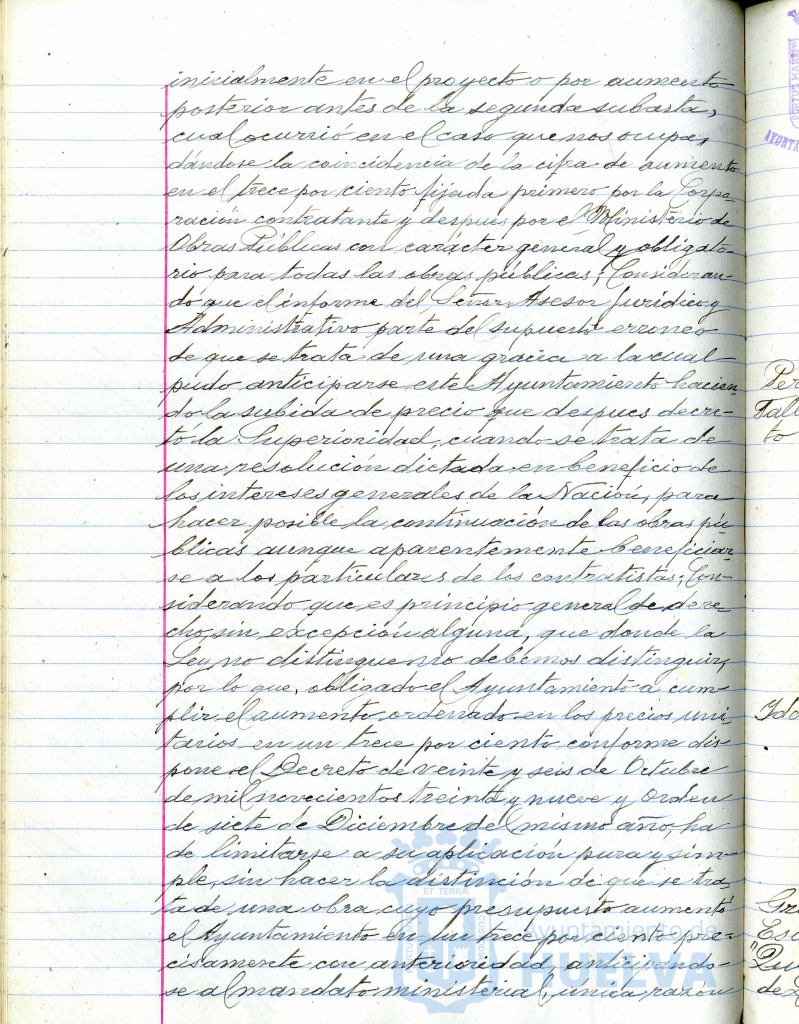 inicialmente en el proyecto o por aumento
posterior antes de la segunda subasta,
cual ocurrió en el caso que nos ocupa,
dándose la coincidencia de la cifra de aumento
en el trece por ciento fijada primero por la Corpo-
ración contratante y despues por el Ministerio de
Obras Públicas con carácter general y obligato-
rio para todas las obras públicas; Consideran-
do que el informe del Señor Asesor Jurídico y
Administrativo parte del supuesto erroneo
de que se trata de una gracia a la cual
pudo anticiparse este Ayuntamiento hacien-
do la subida de precio que despues decre-
tó la Superioridad, cuando se trata de
una resolución dictada en beneficio de
los intereses generales de la Nación, para
hacer posible la continuación de las obras pú-
blicas aunque aparentemente beneficiar-
se a los particulares de los contratistas; Con-
siderando que es principio general de dere-
cho, sin excepción alguna, que donde la
Ley no distingue no debemos distinguir,
por lo que, obligado el Ayuntamiento a cum-
plir el aumento ordenado en los precios uni-
tarios en un trece por ciento conforme dis-
pone el Decreto de veinte y seis de Octubre
de mil novecientos treinta y nueve y Orden
de siete de Diciembre del mismo año, ha
de limitarse a su aplicación pura y sim-
ple, sin hacer la distinción de que se tra-
ta de una obra cuyo presupuesto aumentó
el Ayuntamiento en un trece por ciento pre-
cisamente con anterioridad, anticipando-
se al mandato ministerial, unica razon
Ayuntamiento de
HUELVA
ET TERRA
Per
Tall
to
Ido
Gra
Esc
"Qui
de L